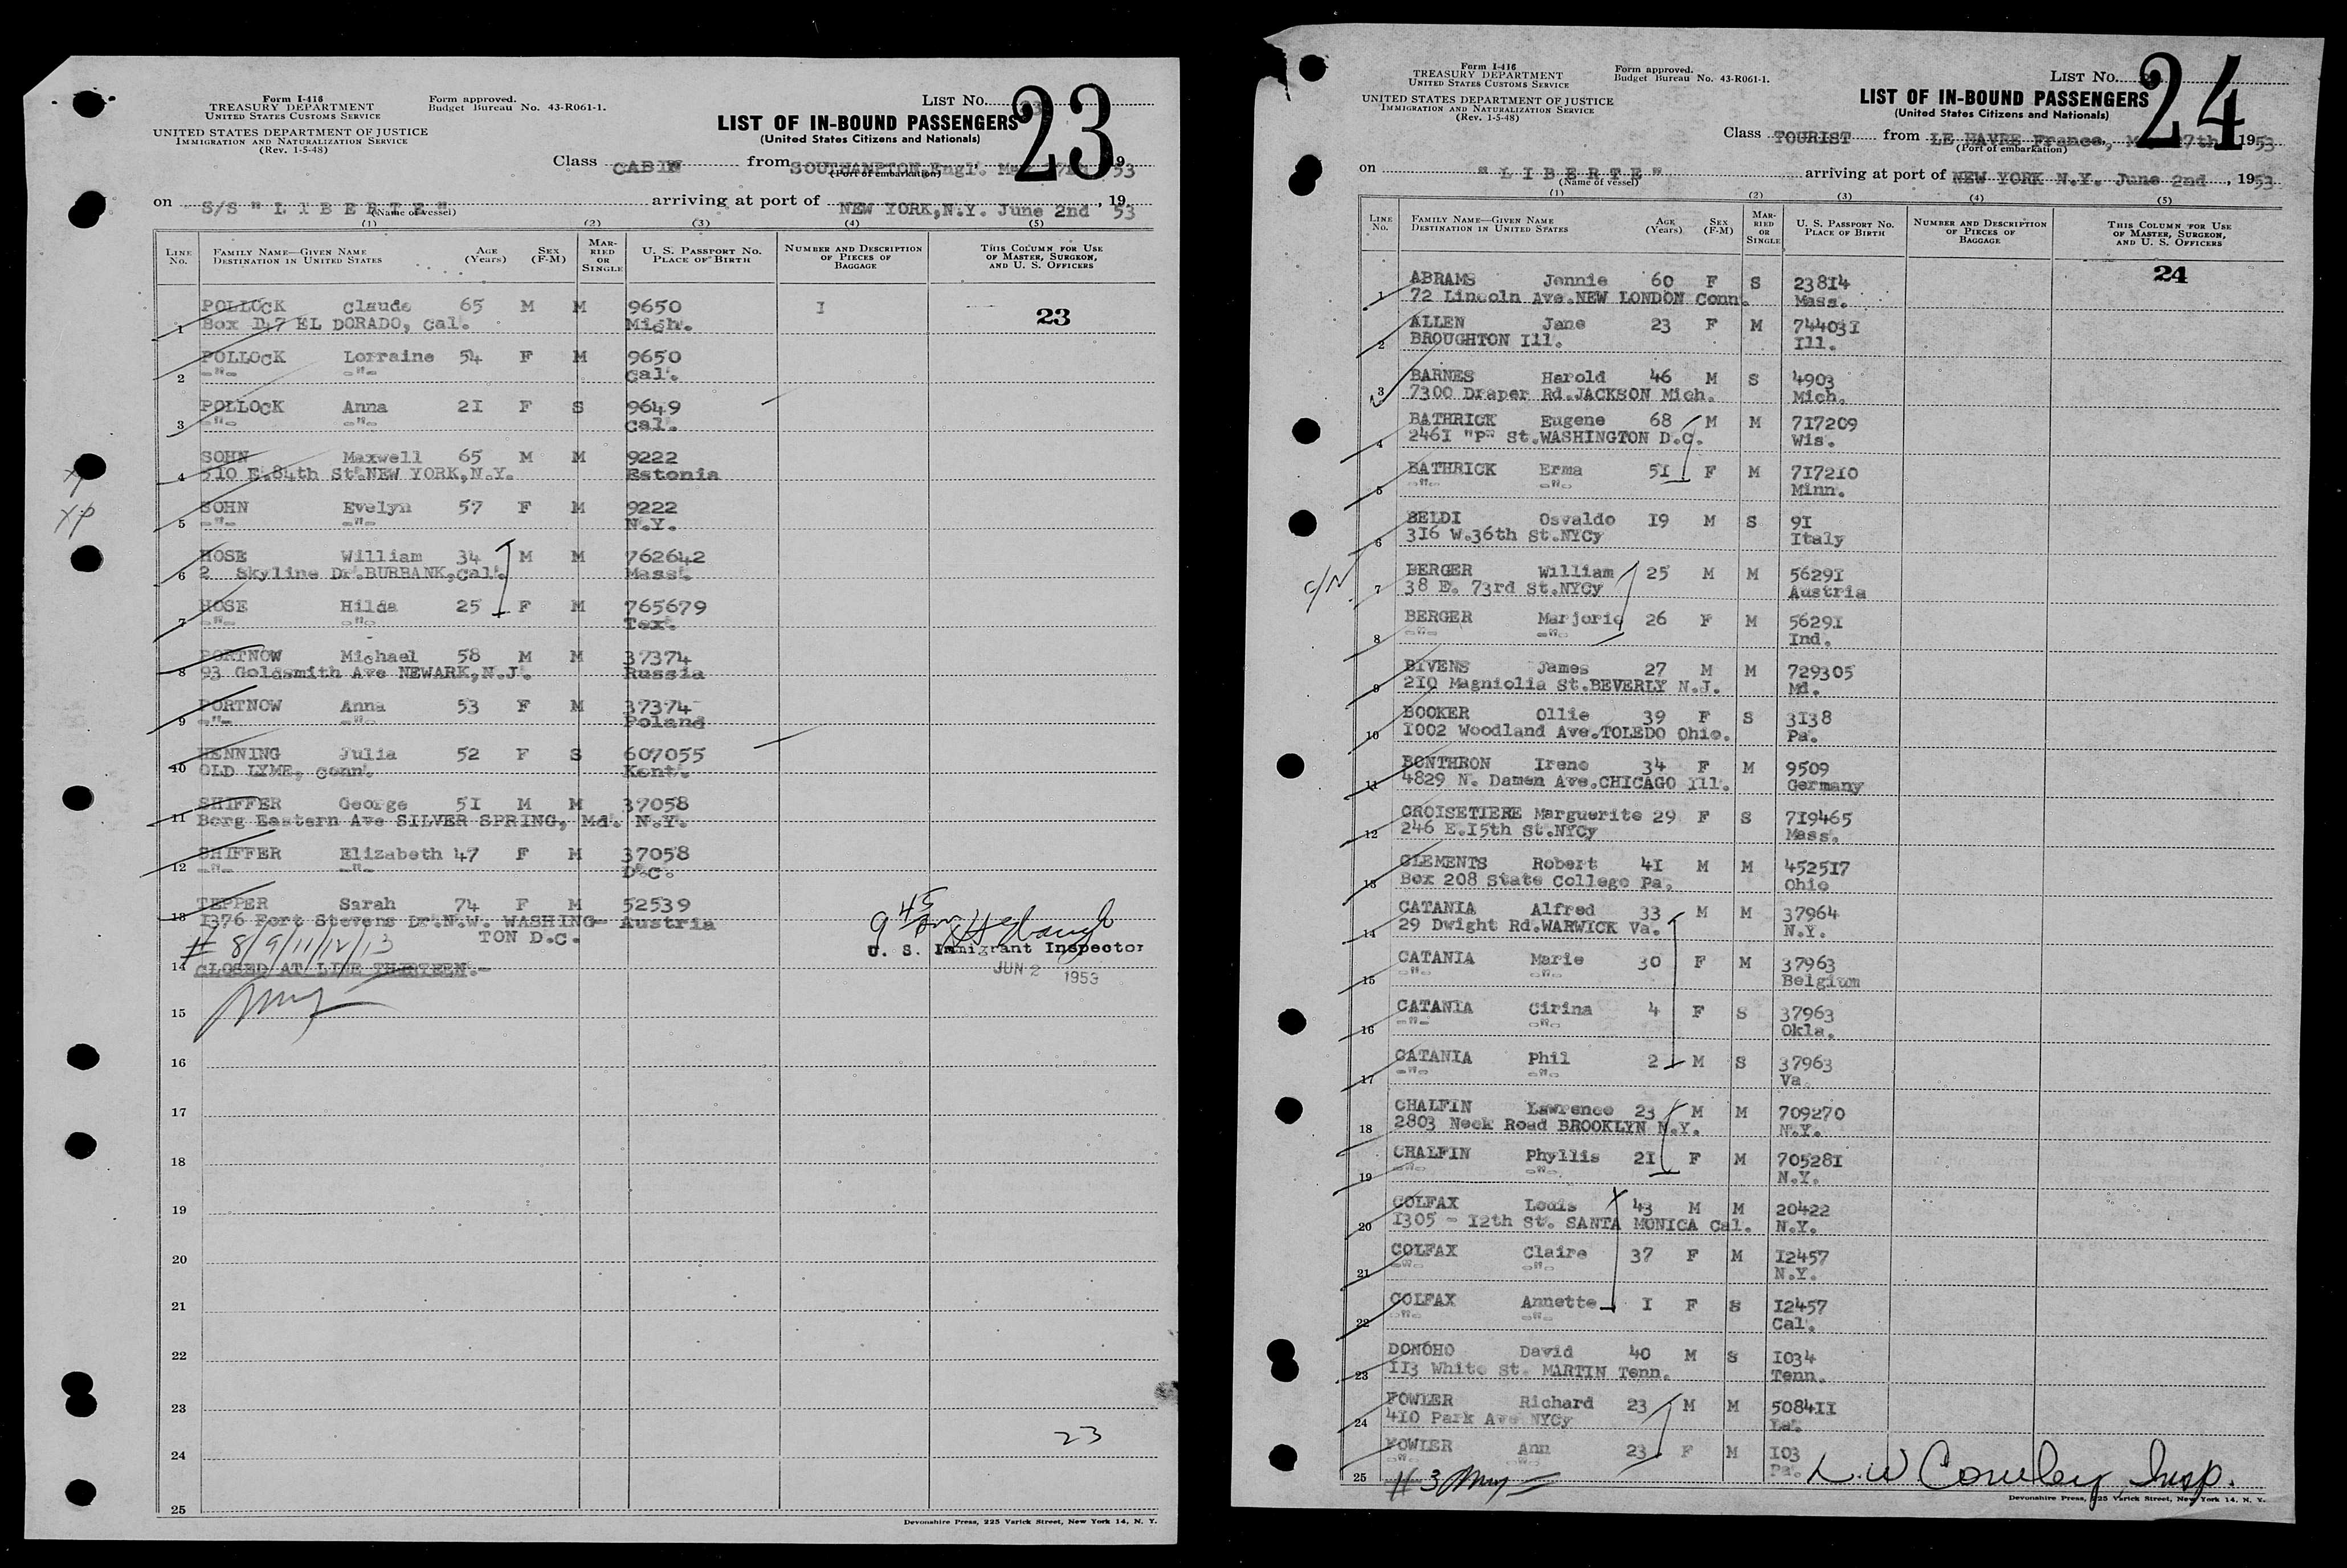 Form I-416
TREASURY DEPARTMENT
UNITED STATES CUSTOMS SERVICE
UNITED STATES DEPARTMENT OF JUSTICE
IMMIGRATION AND NATURALIZATION SERVICE
(Rev. 1-5-48)
Form approved.
Budget Bureau No. 43-R061-1.
LIST No. 23
LIST OF IN-BOUND PASSENGERS
(United States Citizens and Nationals)
Class CABIN from SOUTHAMPTON, Engl. 1953
(Port of embarkation)
on S/S "LIBERTE" arriving at port of NEW YORK, N.Y. June 2nd, 1953
(Name of vessel)
(1) (2) (3) (4) (5)
LINE No. FAMILY NAME—GIVEN NAME DESTINATION IN UNITED STATES AGE (Years) SEX (F-M) MARRIED OR SINGLE U. S. PASSPORT No. PLACE OF BIRTH NUMBER AND DESCRIPTION OF PIECES OF BAGGAGE THIS COLUMN FOR USE OF MASTER, SURGEON, AND U. S. OFFICERS
1 POLLOCK Claude 65 M M 9650 I 23
Box D47 EL DORADO, Cal. Mich.
2 POLLOCK Lorraine 54 F M 9650
-"- -"- Cal.
3 POLLOCK Anna 21 F S 9649
-"- -"- Cal.
4 SOHN Maxwell 65 M M 9222
510 E.84th St.NEW YORK,N.Y. Estonia
xp
5 SOHN Evelyn 57 F M 9222
-"- -"- N.Y.
6 HOSE William 34 M M 762642
2 Skyline Dr.BURBANK,Cal. Mass.
7 HOSE Hilda 25 F M 765679
-"- -"- Tex.
8 PORTNOW Michael 58 M M 37374
93 Goldsmith Ave NEWARK,N.J. Russia
9 PORTNOW Anna 53 F M 37374
-"- -"- Poland
10 HENNING Julia 52 F S 607055
OLD LYME, Conn. Kent.
11 SHIFFER George 51 M M 37058
Borg Eastern Ave SILVER SPRING, Md. N.Y.
12 SHIFFER Elizabeth 47 F M 37058
-"- -"- D.C.
13 TEPPER Sarah 74 F M 52539
1376 Fort Stevens Dr.N.W. WASHING- Austria
TON D.C.
# 8/9/11/12/13
14 CLOSED AT LINE THIRTEEN.-
9 45
U. S. Immigrant Inspector
JUN 2 1953
15
16
17
18
19
20
21
22
23
23
24
25
Devonshire Press, 225 Varick Street, New York 14, N. Y.
Form I-416
TREASURY DEPARTMENT
UNITED STATES CUSTOMS SERVICE
UNITED STATES DEPARTMENT OF JUSTICE
IMMIGRATION AND NATURALIZATION SERVICE
(Rev. 1-5-48)
Form approved.
Budget Bureau No. 43-R061-1.
LIST No. 24
LIST OF IN-BOUND PASSENGERS
(United States Citizens and Nationals)
Class TOURIST from LE HAVRE France, 27th 1953
(Port of embarkation)
on "LIBERTE" arriving at port of NEW YORK N.Y. June 2nd, 1953
(Name of vessel)
(1) (2) (3) (4) (5)
LINE No. FAMILY NAME—GIVEN NAME DESTINATION IN UNITED STATES AGE (Years) SEX (F-M) MARRIED OR SINGLE U. S. PASSPORT No. PLACE OF BIRTH NUMBER AND DESCRIPTION OF PIECES OF BAGGAGE THIS COLUMN FOR USE OF MASTER, SURGEON, AND U. S. OFFICERS
24
1 ABRAMS Jennie 60 F S 23814
72 Lincoln Ave.NEW LONDON Conn. Mass.
2 ALLEN Jane 23 F M 744031
BROUGHTON Ill. Ill.
3 BARNES Harold 46 M S 4903
7300 Draper Rd.JACKSON Mich. Mich.
4 BATHRICK Eugene 68 M M 717209
2461 "P" St.WASHINGTON D.C. Wis.
5 BATHRICK Erma 51 F M 717210
-"- -"- Minn.
6 BELDI Osvaldo 19 M S 91
316 W.36th St.NYCy Italy
c/N
7 BERGER William 25 M M 56291
38 E. 73rd St.NYCy Austria
8 BERGER Marjorie 26 F M 56291
-"- -"- Ind.
9 BIVENS James 27 M M 729305
210 Magniolia St.BEVERLY N.J. Md.
10 BOOKER Ollie 39 F S 3138
1002 Woodland Ave.TOLEDO Ohio. Pa.
11 BONTHRON Irene 34 F M 9509
4829 N. Damen Ave.CHICAGO Ill. Germany
12 CROISETIERE Marguerite 29 F S 719465
246 E.15th St.NYCy Mass.
13 CLEMENTS Robert 41 M M 452517
Box 208 State College Pa. Ohio
14 CATANIA Alfred 33 M M 37964
29 Dwight Rd.WARWICK Va. N.Y.
15 CATANIA Marie 30 F M 37963
-"- -"- Belgium
16 CATANIA Cirina 4 F S 37963
-"- -"- Okla.
17 CATANIA Phil 2 M S 37963
-"- -"- Va.
18 CHALFIN Lawrence 23 M M 709270
2803 Neck Road BROOKLYN N.Y. N.Y.
19 CHALFIN Phyllis 21 F M 705281
-"- -"- N.Y.
20 COLFAX Louis 43 M M 20422
1305 - 12th St. SANTA MONICA Cal. N.Y.
21 COLFAX Claire 37 F M 12457
-"- -"- N.Y.
22 COLFAX Annette 1 F S 12457
-"- -"- Cal.
23 DONOHO David 40 M S 1034
113 White St. MARTIN Tenn. Tenn.
24 FOWLER Richard 23 M M 508411
410 Park Ave NYCy La.
25 FOWLER Ann 23 F M 103
-"- -"- Pa.
# 3
L.W. Cowley, Insp.
Devonshire Press, 225 Varick Street, New York 14, N. Y.